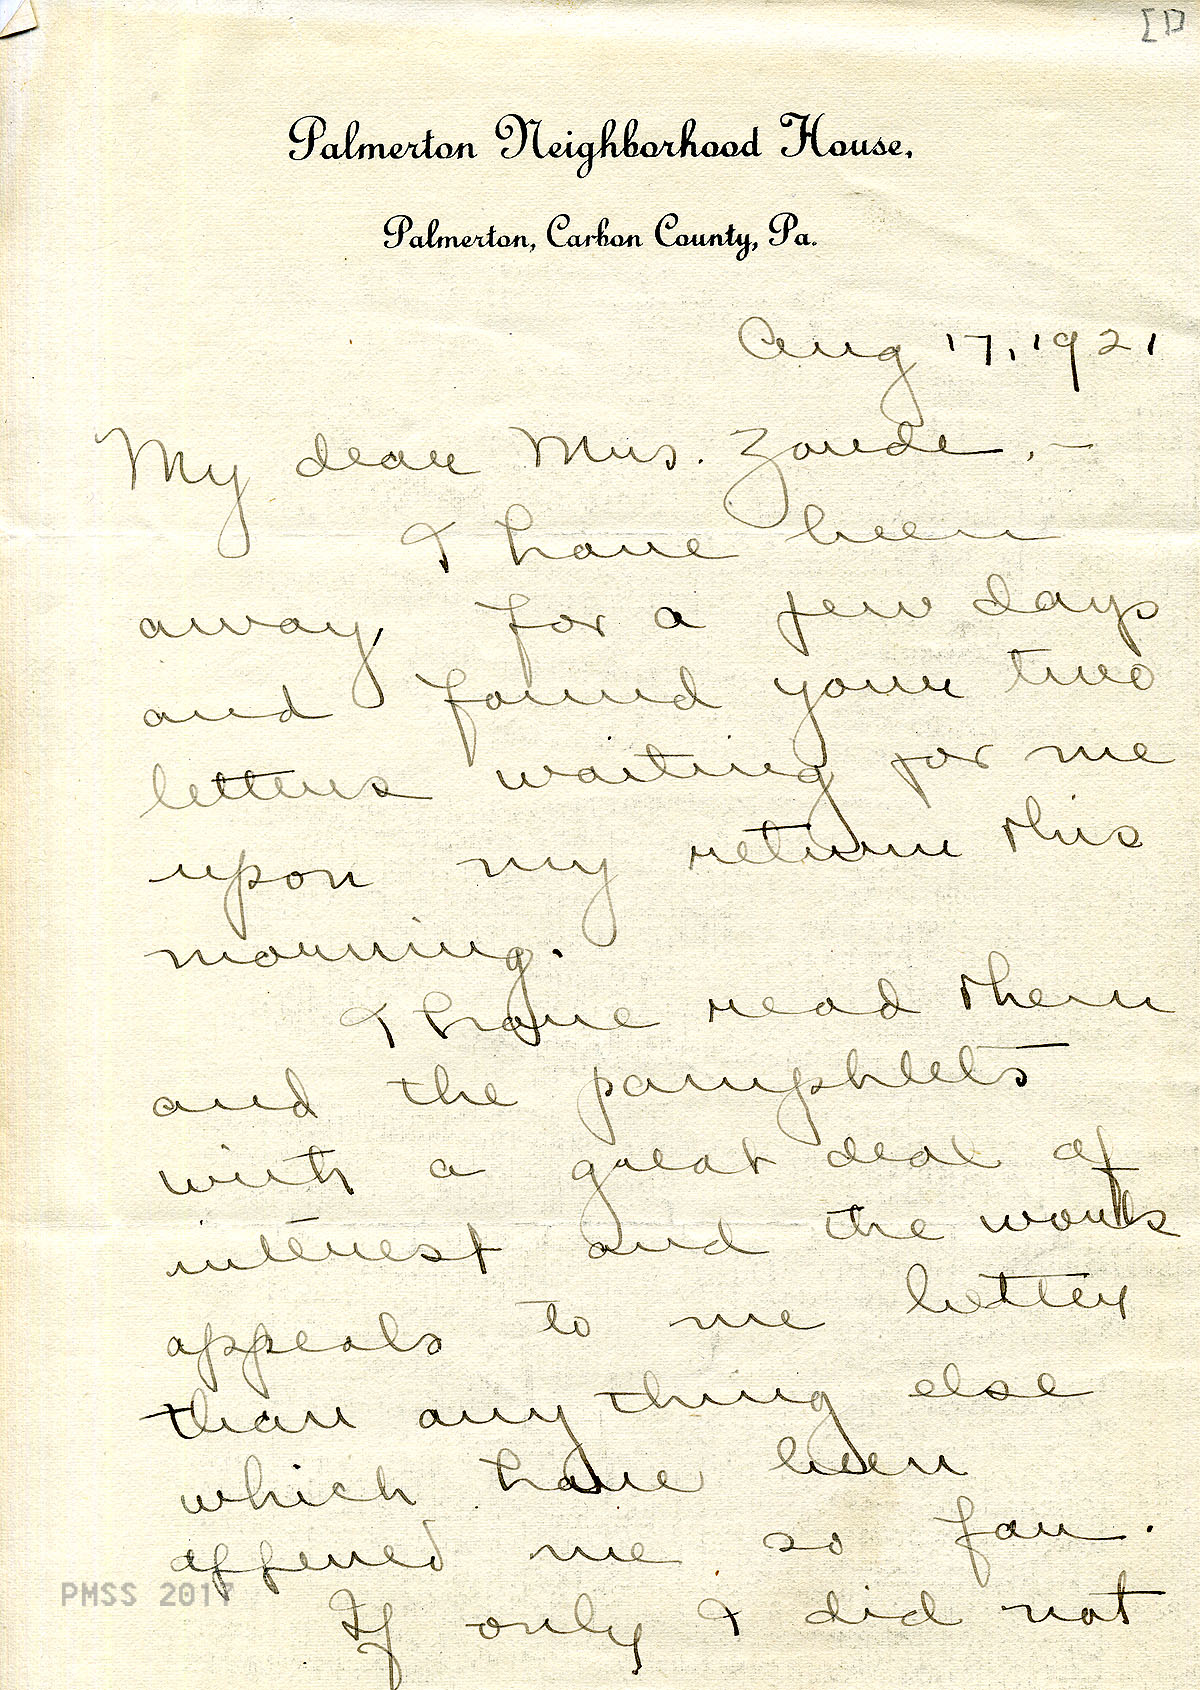 [1]
Palmerton Neighborhood House,
Palmerton, Carbon County, Pa.
Aug 17, 1921
My dear Mrs. Zande, -
I have been
away for a few days
and found your two
letters waiting for me
upon my return this
morning.
I have read them
and the pamphlets
with a great deal of
interest and the work
appeals to me better
than anything else
which have been
offered me so far.
If only I did not
PMSS 2017